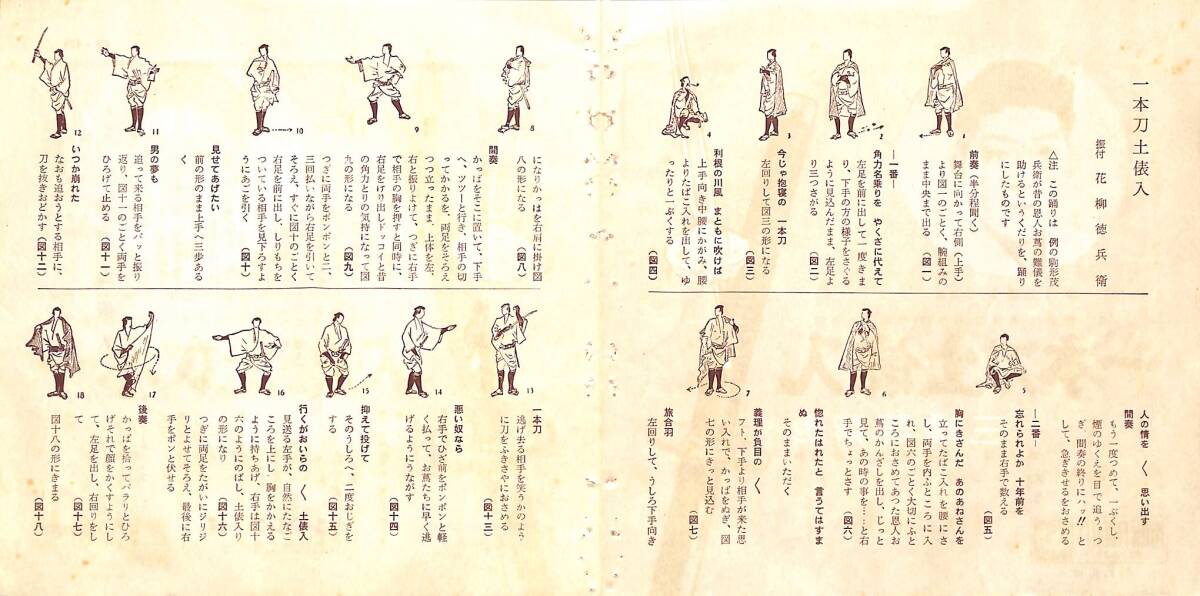 一本刀土俵入
振付 花柳徳兵衛
△注 この踊りは 例の駒形茂
兵衛が昔の恩人お蔦の難儀を
助けるというくだりを、踊り
にしたものです
前奏（半分程聞く）
舞台に向かって右側（上手）
より図一のごとく、腕組みの
まま中央まで出る
（図一）
―一番―
角力名乗りを やくざに代えて
左足を前に出して一度きま
り、下手の方の様子をさぐる
ように見込んだまま、左足よ
り三つさがる
（図二）
今じゃ抱寝の 一本刀
左回りして図三の形になる
（図三）
利根の川風 まともに吹けば
上手向き中腰にかがみ、腰
よりたばこ入れを出して、ゆ
ったりと一ぷくする
（図四）
1
2
3
4
人の情を 〱 思い出す
間奏
もう一度つめて、一ぷくし、
煙のゆくえを目で追う。つ
ぎ、間奏の終りにハッ!! と
して、急ぎきせるをおさめる
―二番―
忘れられよか 十年前を
そのまま右手で数える
（図五）
胸にきざんだ あのあねさんを
立ってたばこ入れを腰にさ
し、両手を内ふところに入
れ、図六のごとく大切にふと
ころにおさめてあった恩人お
蔦のかんざしを出し、じっと
見て、あの時の事を……と右
手でちょっとさす
（図六）
惚れたはれたと 言うてはすま
ぬ
そのままいただく
義理が負目の 〱
フト、下手より相手が来た思
い入れで、かっぱをぬぎ、図
七の形にきっと見込む
（図七）
旅合羽
左回りして、うしろ下手向き
5
6
7
になりかっぱを右肩に掛け図
八の形になる
（図八）
間奏
かっぱをそこに置いて、下手
へ、ツツーと行き、相手の切
ってかかるを、両足をそろえ
つつ立ったまま、上体を左、
右と振りよけて、つぎに右手
で相手の胸を押すと同時に、
右足をけり出しドッコイと昔
の角力とりの気持になって図
九の形になる
（図九）
つぎに両手をポンポンと二、
三回払いながら右足を引いて
そろえ、すぐに図十のごとく
右足を前に出し、しりもちを
ついている相手を見下ろすよ
うにあごを引く
（図十）
見せてあげたい
前の形のまま上手へ三歩ある
く
男の夢も
追って来る相手をパッと振り
返り、図十一のごとく両手を
ひろげて止める
（図十一）
いつか崩れた
なおも追おうとする相手に、
刀を抜きおどかす
（図十二）
8
9
10
11
12
一本刀
逃げ去る相手を笑うかのよう
に刀をふきさやにおさめる
（図十三）
悪い奴なら
右手でひざ前をポンポンと軽
く払って、お蔦たちに早く逃
げるようにうながす
（図十四）
抑えて投げて
そのうしろへ、二度おじぎを
する
（図十五）
行くがおいらの 〱 土俵入
見送る左手が、自然にたなご
ころを上にし、胸をかかえる
ように持ちあげ、右手は図十
六のようにのばし、土俵入り
の形になり
（図十六）
つぎに両足をたがいにジリジ
リとよせてそろえ、最後に右
手をポンと伏せる
後奏
かっぱを拾ってパラリとひろ
げそれで顔をかくすようにし
て、左足を出し、右回りをし
（図十七）
図十八の形にきまる
（図十八）
13
14
15
16
17
18